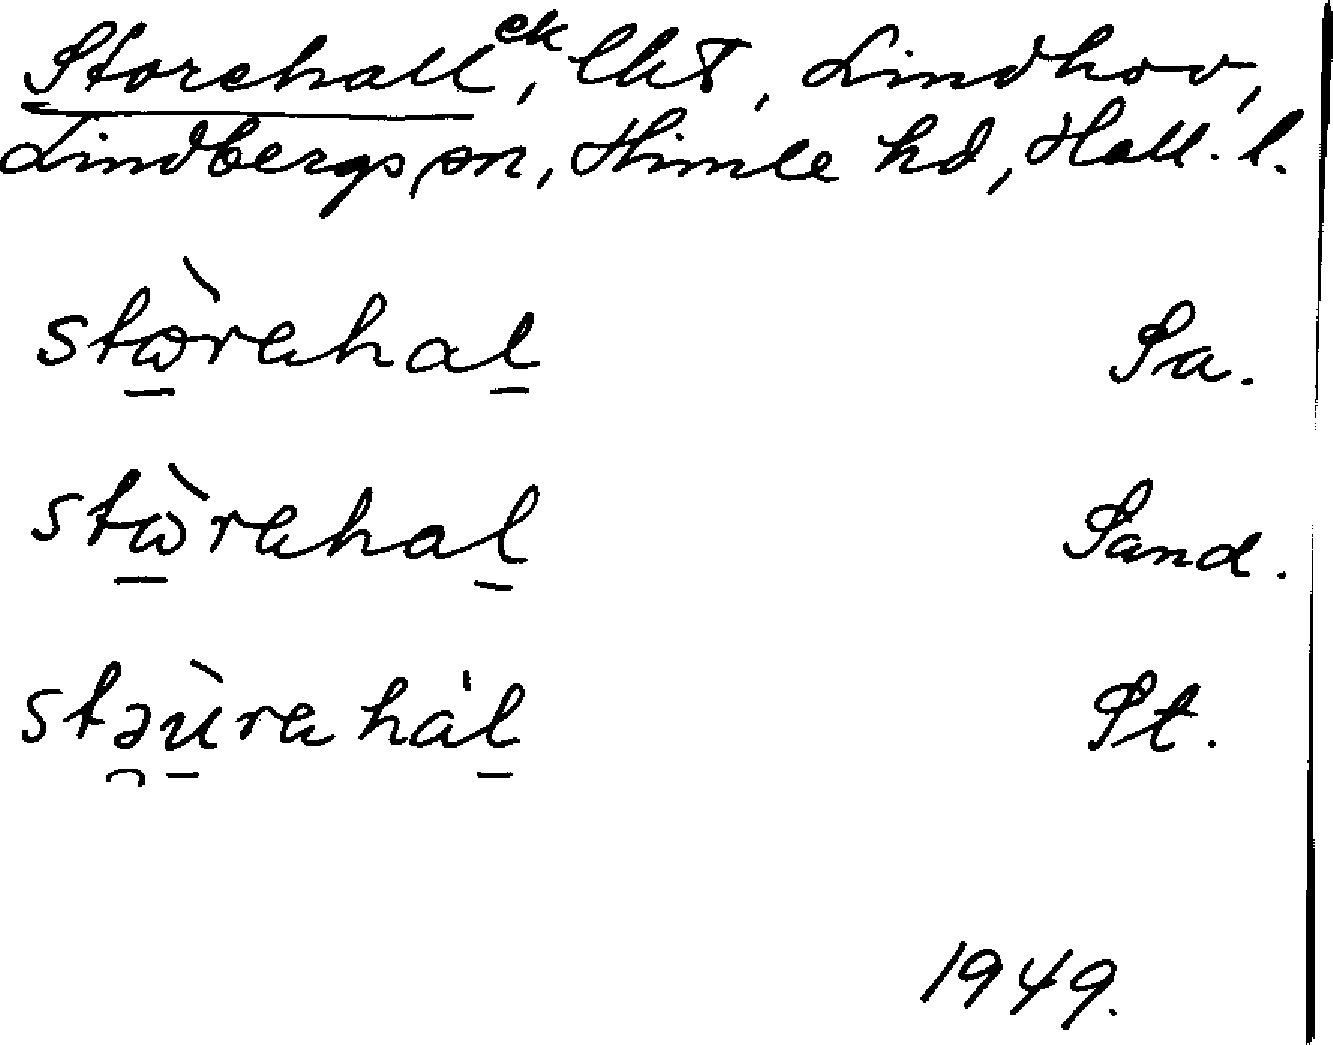 Storehall ek, lht, Lindhov,
Lindbergs sn, Himle hd, Hall. l.
stὼ̲rahal̲ Sa.
stὼ̲rahal̲ Sand.
stə̯ù̲raha'l̲ St.
1949.